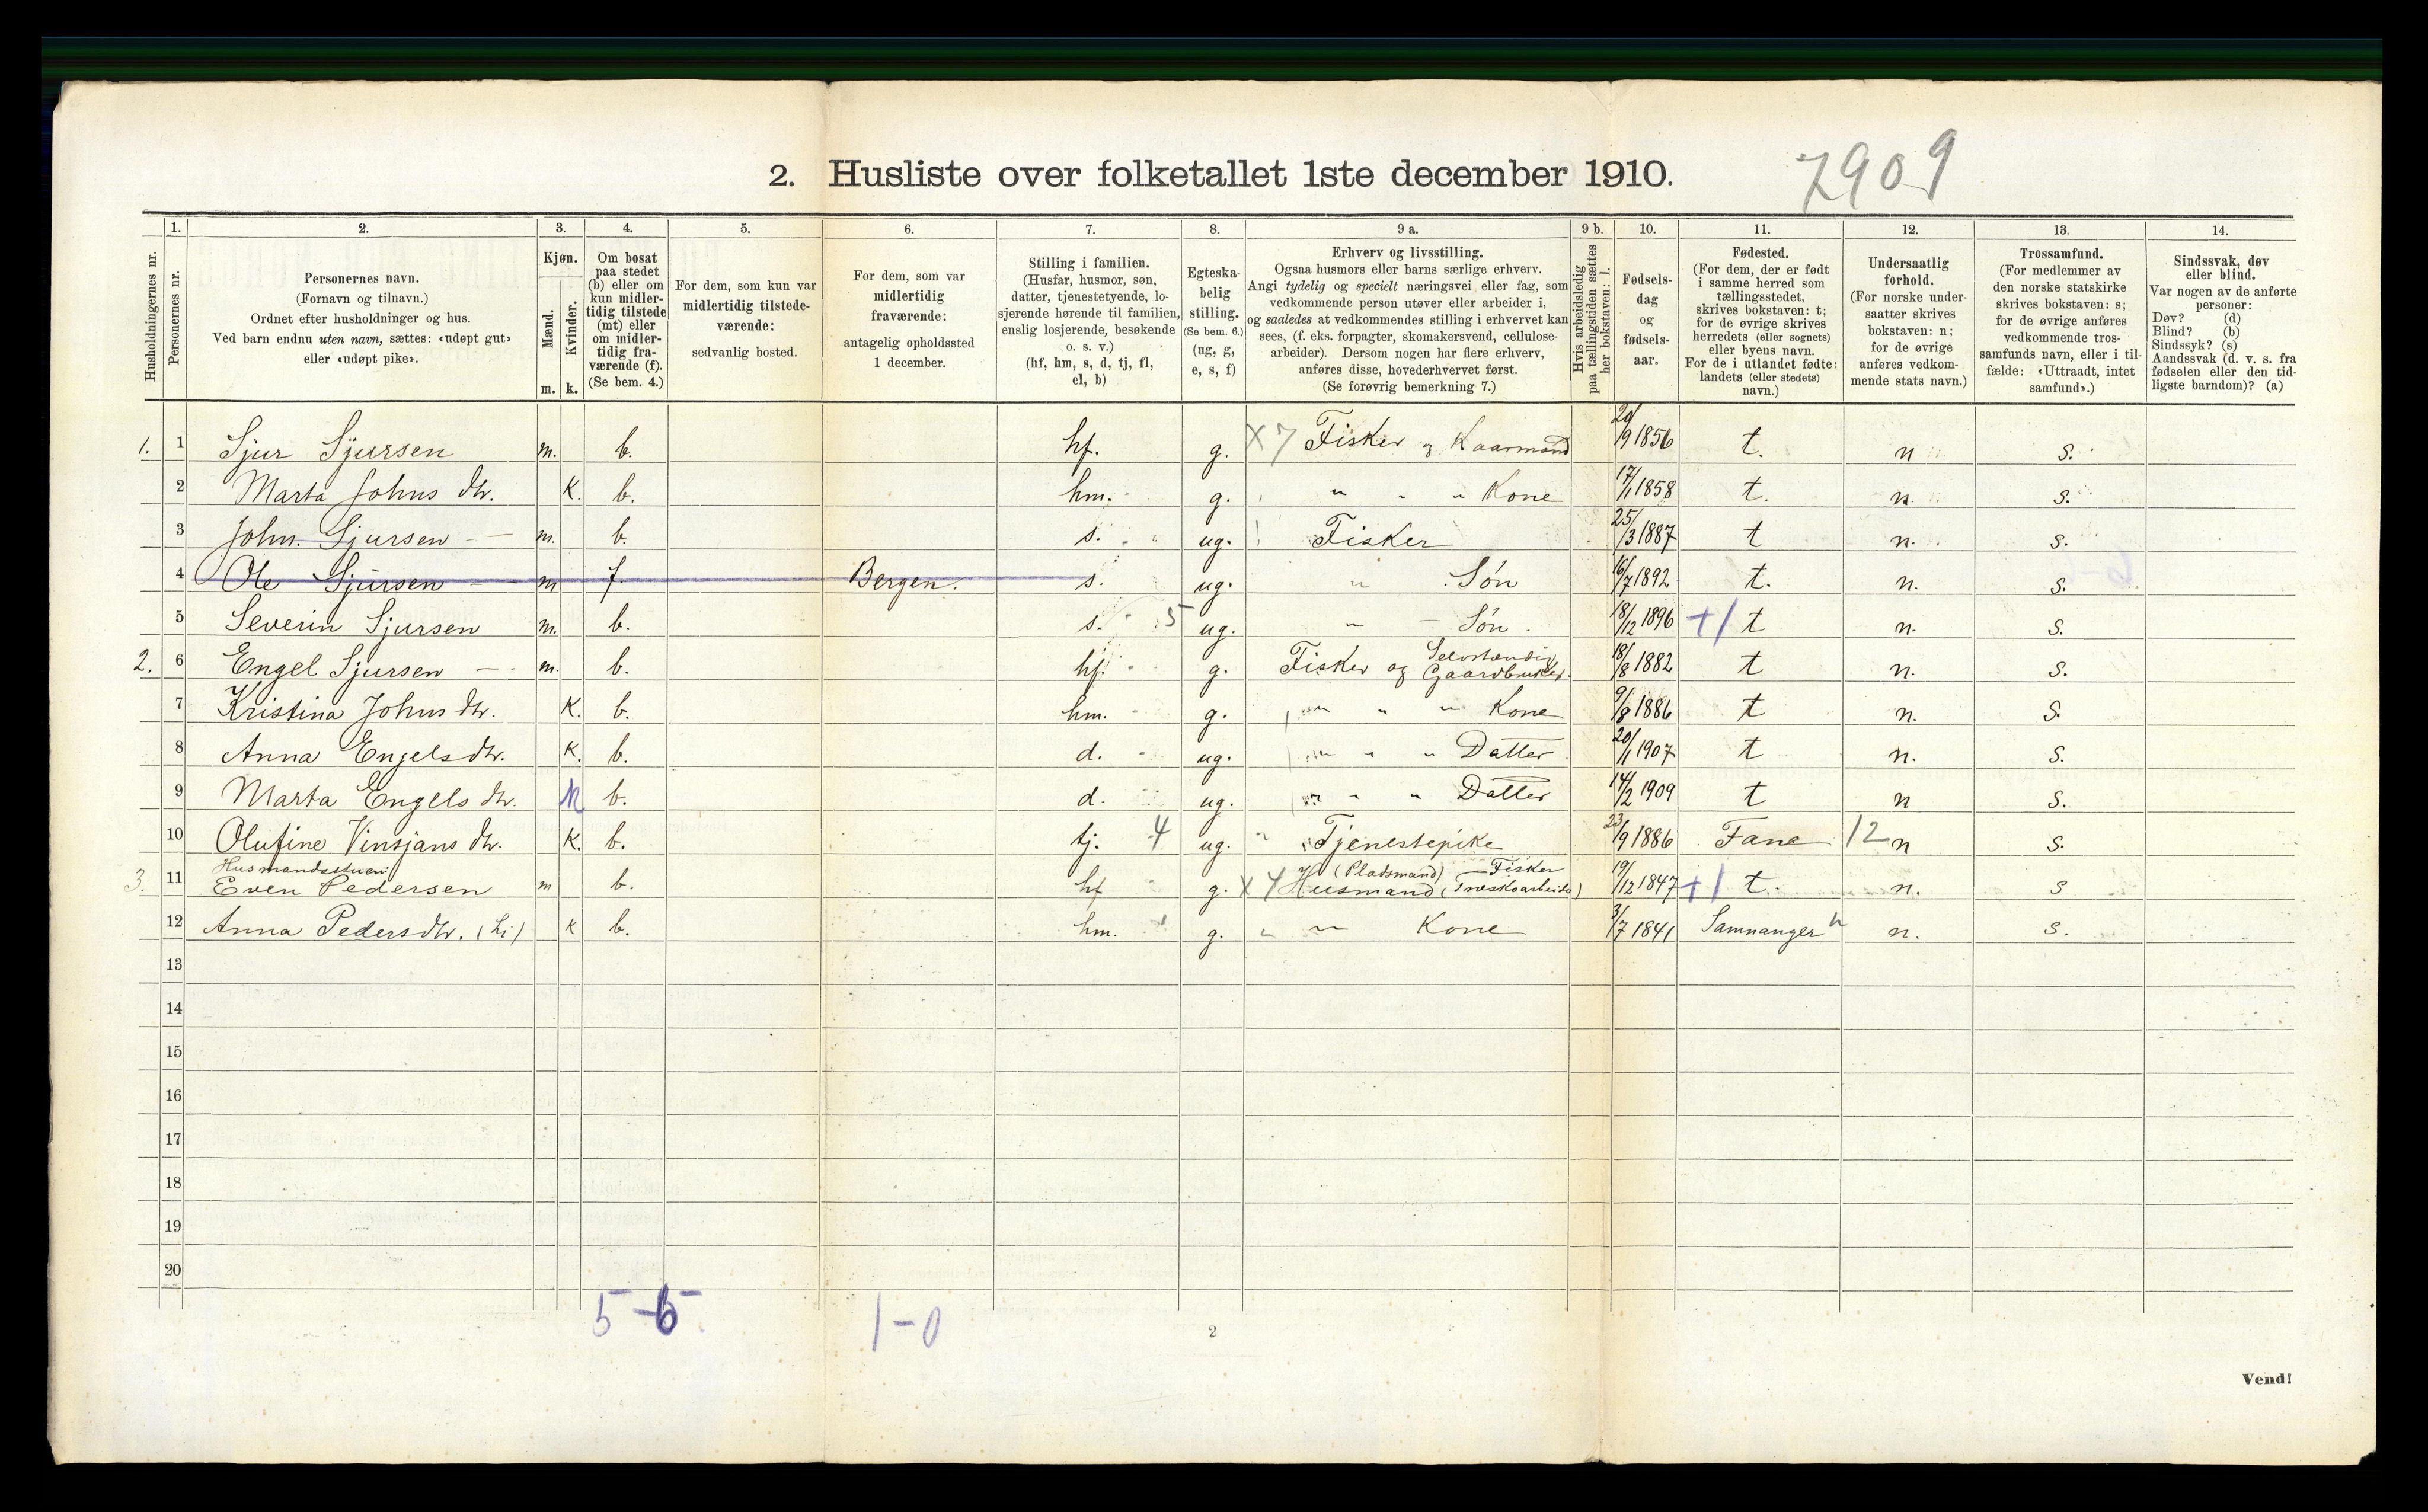 2. Husliste over folketallet 1ste december 1910.
7909
Husholdningernes nr.
1.
Personernes nr.
2.
Personernes navn.
(Fornavn og tilnavn.)
Ordnet efter husholdninger og hus.
Ved barn endnu uten navn, sættes: «udøpt gut»
eller «udøpt pike».
3.
Kjøn.
Mænd.
Kvinder.
m. k.
4.
Om bosat
paa stedet
(b) eller om
kun midler-
tidig tilstede
(mt) eller
om midler-
tidig fra-
værende (f).
(Se bem. 4.)
5.
For dem, som kun var
midlertidig tilstede-
værende:
sedvanlig bosted.
6.
For dem, som var
midlertidig
fraværende:
antagelig opholdssted
1 december.
7.
Stilling i familien.
(Husfar, husmor, søn,
datter, tjenestetyende, lo-
sjerende hørende til familien,
enslig losjerende, besøkende
o. s. v.)
(hf, hm, s, d, tj, fl,
el, b)
8.
Egteska-
belig
stilling.
(Se bem. 6.)
(ug, g,
e, s, f)
9 a.
Erhverv og livsstilling.
Ogsaa husmors eller barns særlige erhverv.
Angi tydelig og specielt næringsvei eller fag, som
vedkommende person utøver eller arbeider i,
og saaledes at vedkommendes stilling i erhvervet kan
sees, (f. eks. forpagter, skomakersvend, cellulose-
arbeider). Dersom nogen har flere erhverv,
anføres disse, hovederhvervet først.
(Se forøvrig bemerkning 7.)
9 b.
Hvis arbeidsledig
paa tællingstiden sættes
her bokstaven: l.
10.
Fødsels-
dag
og
fødsels-
aar.
11.
Fødested.
(For dem, der er født
i samme herred som
tællingsstedet,
skrives bokstaven: t;
for de øvrige skrives
herredets (eller sognets)
eller byens navn.
For de i utlandet fødte:
landets (eller stedets)
navn.)
12.
Undersaatlig
forhold.
(For norske under-
saatter skrives
bokstaven: n;
for de øvrige
anføres vedkom-
mende stats navn.)
13.
Trossamfund.
(For medlemmer av
den norske statskirke
skrives bokstaven: s;
for de øvrige anføres
vedkommende tros-
samfunds navn, eller i til-
fælde: «Uttraadt, intet
samfund».)
14.
Sindssvak, døv
eller blind.
Var nogen av de anførte
personer:
Døv? (d)
Blind? (b)
Sindssyk? (s)
Aandssvak (d. v. s. fra
fødselen eller den tid-
ligste barndom)? (a)
1. 1 Sjur Sjursen m. b. hf. g. X 7 Fisker og Kaarmand 20/9 1856 t. n s.
2 Marta Johns dtr. K. b. hm. g. " " " Kone 17/1 1858 t. n. s.
3 John. Sjursen m. b. s. ug. Fisker 25/3 1887 t n. s.
4 Ole Sjursen m f. Bergen. s. ug. " Søn 16/7 1892 t. n. s.
5 Severin Sjursen m. b. s. 5 ug. " Søn. 18/12 1896 +1 t n. s.
2. 6 Engel Sjursen m. b. hf. g. Fisker og Selvstændig Gaardbruker. 18/8 1882 t n. s.
7 Kristina Johns dtr. K. b. hm. g. " " " Kone 9/8 1886 t n. s.
8 Anna Engelsdtr. K. b. d. ug. " " " Datter 20/1 1907 t n. s.
9 Marta Engels dtr. k b. d. ug. " " " Datter 14/2 1909 t n s.
10 Olufine Vinsjans dtr. K. b. tj. 4 ug. " Tjenestepike 23/9 1886 Fane 12 n s.
Husmandsstuen:
3. 11 Even Pedersen m b. hf g. X 4 Husmand (Pladsmand) Fisker (Træskoarbeider) 19/12 1847 +1 t. n. s
12 Anna Pedersdtr. (Li) k b. hm. g. " " Kone 3/7 1841 Samnanger n. s.
13
14
15
16
17
18
19
20
5-6
1-0
2
Vend!